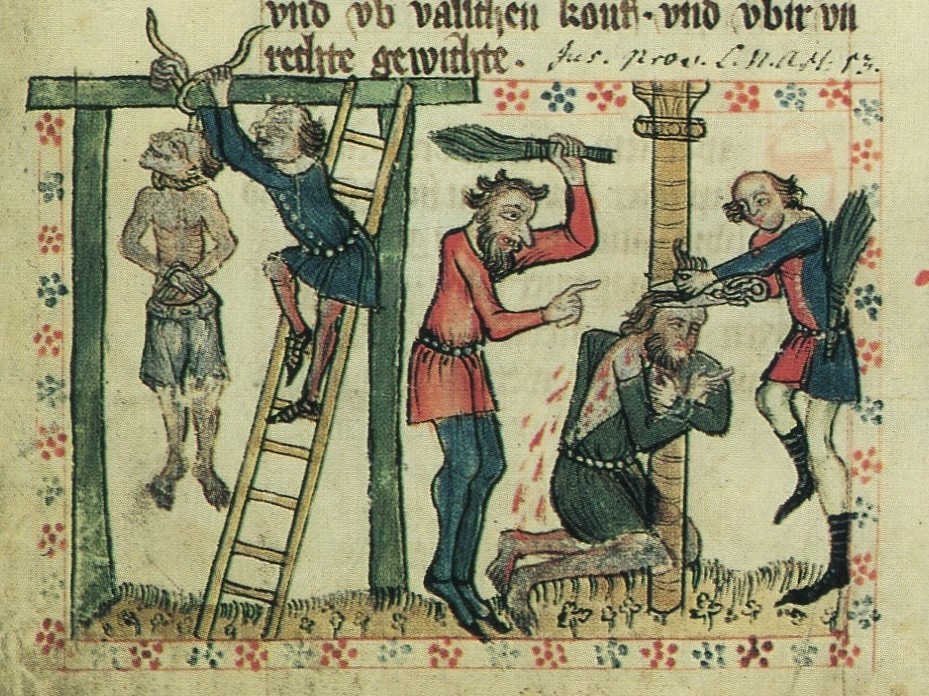 vnd vb valschen kouff · vnd vbir vn
rechte gewichte .
Jus. prov.